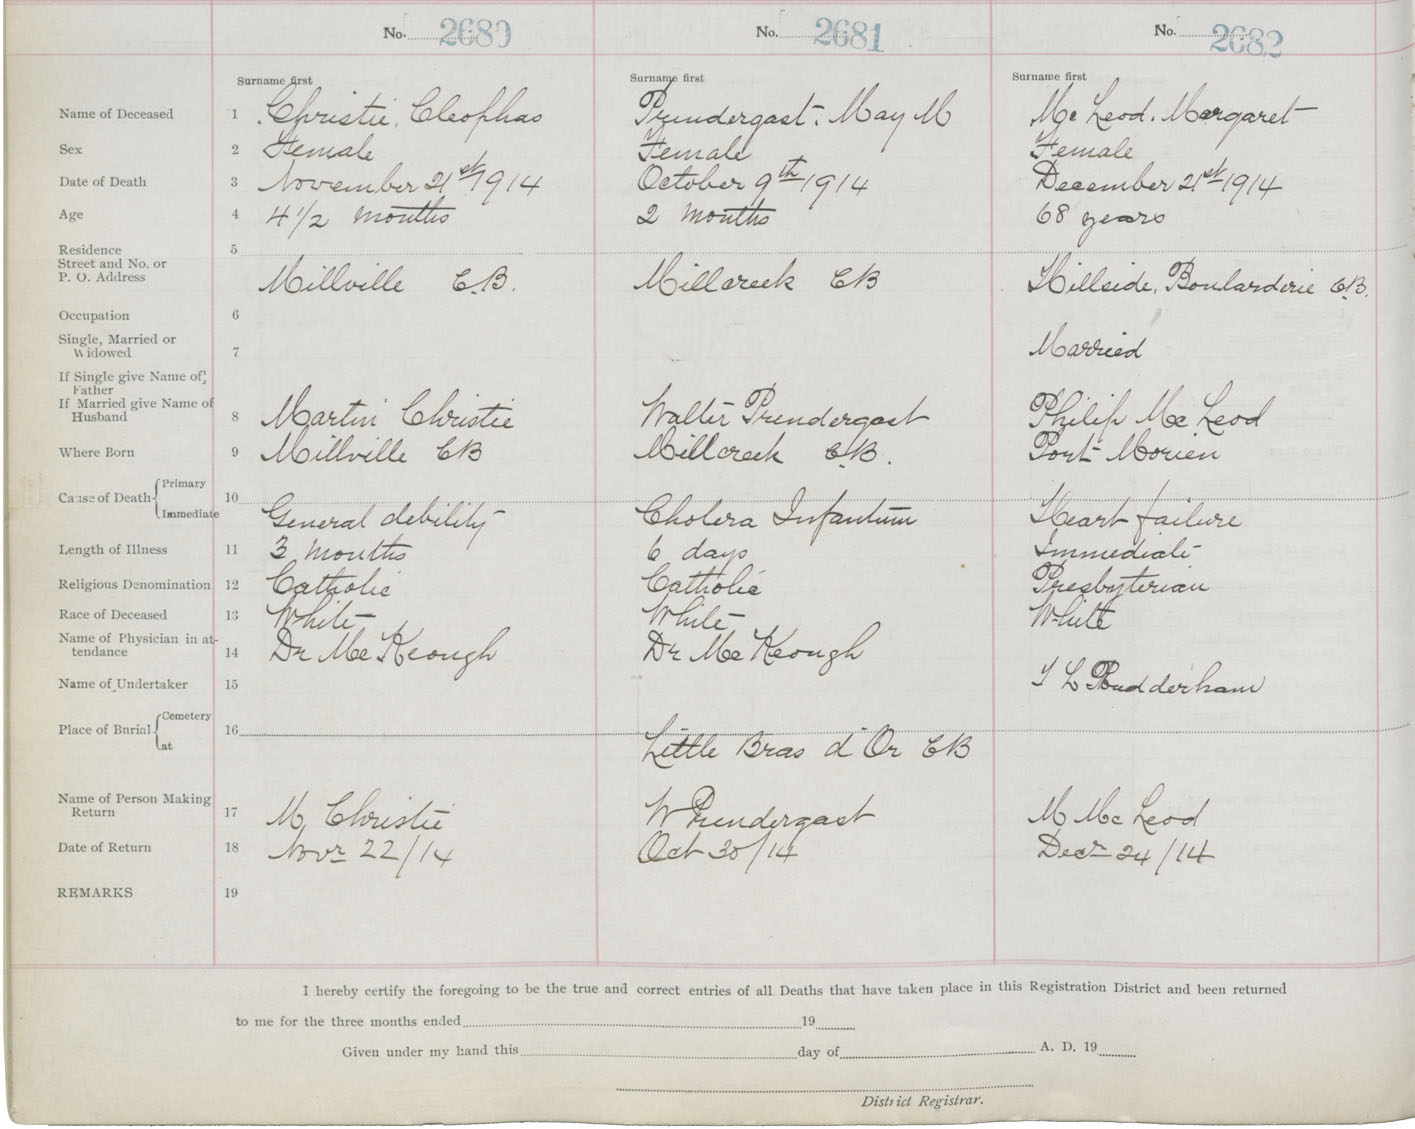 No. 2680 No. 2681 No. 2682
Surname first Surname first Surname first
Name of Deceased 1 Christie, Cleophas Prundergast. May M Mc Leod. Margaret
Sex 2 Female Female Female
Date of Death 3 November 21st 1914 October 9th 1914 December 21st 1914
Age 4 4 1/2 months 2 months 68 years
Residence 5
Street and No. or
P. O. Address Millville C.B. Millcreek CB Hillside, Boularderie C.B.
Occupation 6
Single, Married or
Widowed 7 Married
If Single give Name of
Father
If Married give Name of
Husband 8 Martin Christie Walter Prundergast Philip Mc Leod
Where Born 9 Millville CB Millcreek C.B. Port Morien
Primary
Cause of Death 10
Immediate General debility Cholera Infantum Heart failure
Length of Illness 11 3 months 6 days Immediate
Religious Denomination 12 Catholic Catholic Presbyterian
Race of Deceased 13 White White White
Name of Physician in at-
tendance 14 Dr McKeough Dr McKeough
Name of Undertaker 15 Rudderham
Cemetery
Place of Burial 16
at Little Bras d'Or CB
Name of Person Making
Return 17 M. Christie W Prundergast M McLeod
Date of Return 18 Novr 22/14 Oct 30/14 Decr 24/14
REMARKS 19
I hereby certify the foregoing to be the true and correct entries of all Deaths that have taken place in this Registration District and been returned
to me for the three months ended 19
Given under my hand this day of A. D. 19
District Registrar.